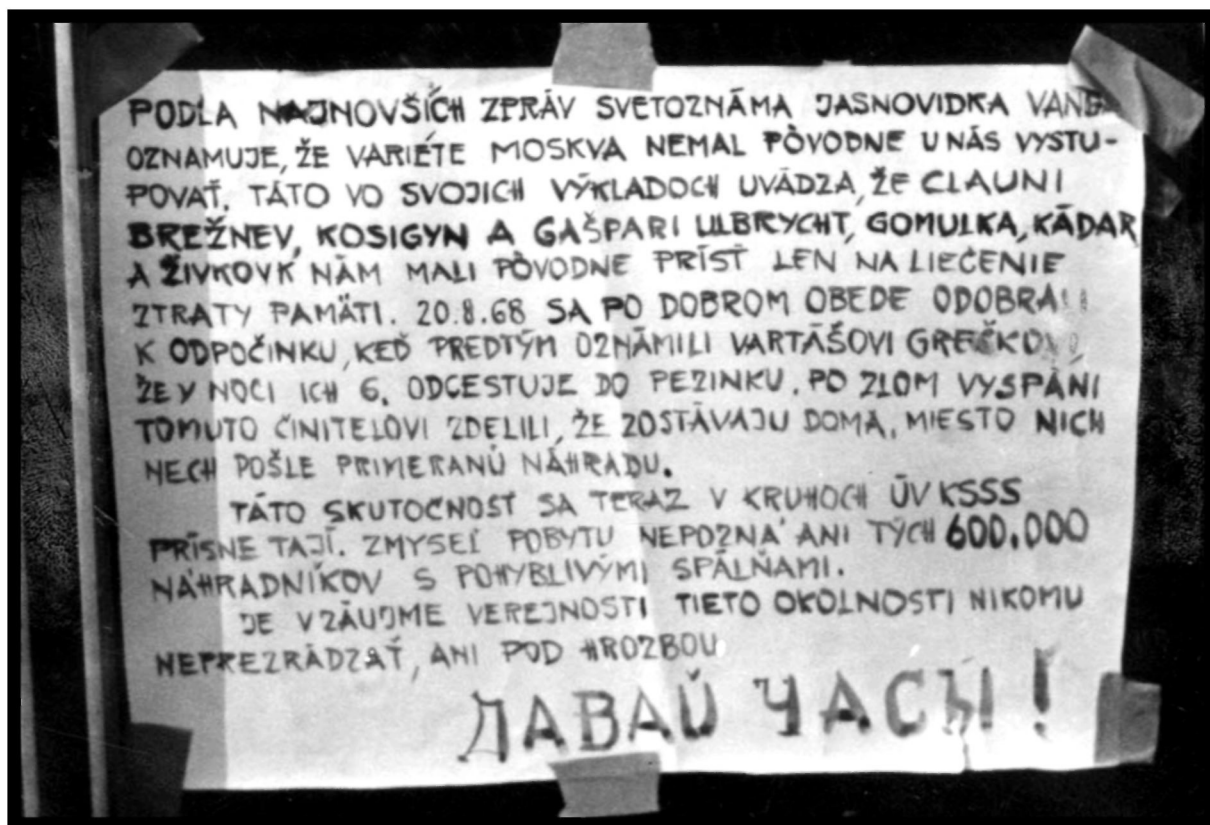 PODĽA NAJNOVŠÍCH ZPRÁV SVETOZNÁMA JASNOVIDKA
OZNAMUJE, ŽE VARIÉTE MOSKVA NEMAL PÔVODNE U NÁS VYSTU-
POVAŤ. TÁTO VO SVOJICH VÝKLADOCH UVÁDZA, ŽE CLAUNI
BREŽNEV, KOSIGYN A GAŠPARI ULBRYCHT, GOMULKA, KÁDAR
A ŽIVKOV K NÁM MALI PÔVODNE PRÍSŤ LEN NA LIEČENIE
ZTRATY PAMÄTI. 20.8.68 SA PO DOBROM OBEDE
K ODPOČINKU, KEĎ PREDTÝM OZNÁMILI VARTÁŠOVI
ŽE V NOCI ICH 6. ODCESTUJE DO PEZINKU. PO ZLOM VYSPÁNÍ
TOMUTO ČINITELOVI ZDELILI, ŽE ZOSTÁVAJU DOMA, MIESTO NICH
NECH POŠLE PRIMERANÚ NÁHRADU.
TÁTO SKUTOČNOSŤ SA TERAZ V KRUHOCH ÚV KSSS
PRÍSNE TAJÍ. ZMYSEĽ POBYTU NEPOZNÁ ANI TÝCH 600.000
NÁHRADNÍKOV S POHYBLIVÝMI SPÁLŇAMI.
JE V ZÁUJME VEREJNOSTI TIETO OKOLNOSTI NIKOMU
NEPREZRÁDZAŤ, ANI POD HROZBOU
ДАВАЙ ЧАСЫ!